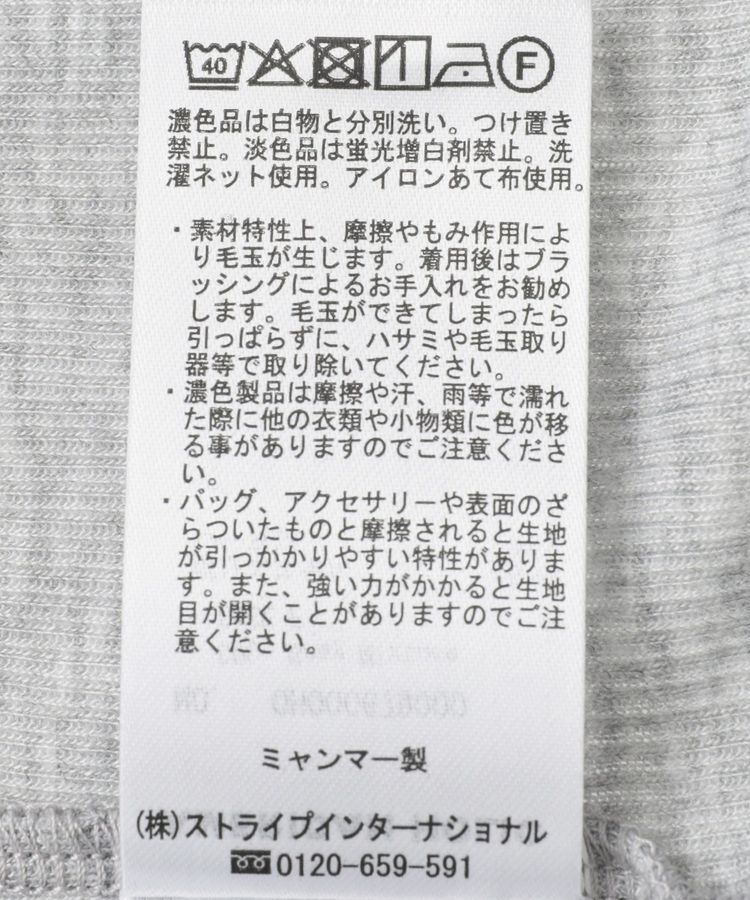 40 F
濃色品は白物と分別洗い。つけ置き
禁止。淡色品は蛍光増白剤禁止。洗
濯ネット使用。アイロンあて布使用。
・素材特性上、摩擦やもみ作用によ
り毛玉が生じます。着用後はブラ
ッシングによるお手入れをお勧め
します。毛玉ができてしまったら
引っぱらずに、ハサミや毛玉取り
器等で取り除いてください。
・濃色製品は摩擦や汗、雨等で濡れ
た際に他の衣類や小物類に色が移
る事がありますのでご注意くださ
い。
・バッグ、アクセサリーや表面のざ
らついたものと摩擦されると生地
が引っかかりやすい特性がありま
す。また、強い力がかかると生地
目が開くことがありますのでご注
意ください。
ミャンマー製
(株)ストライプインターナショナル
0120-659-591